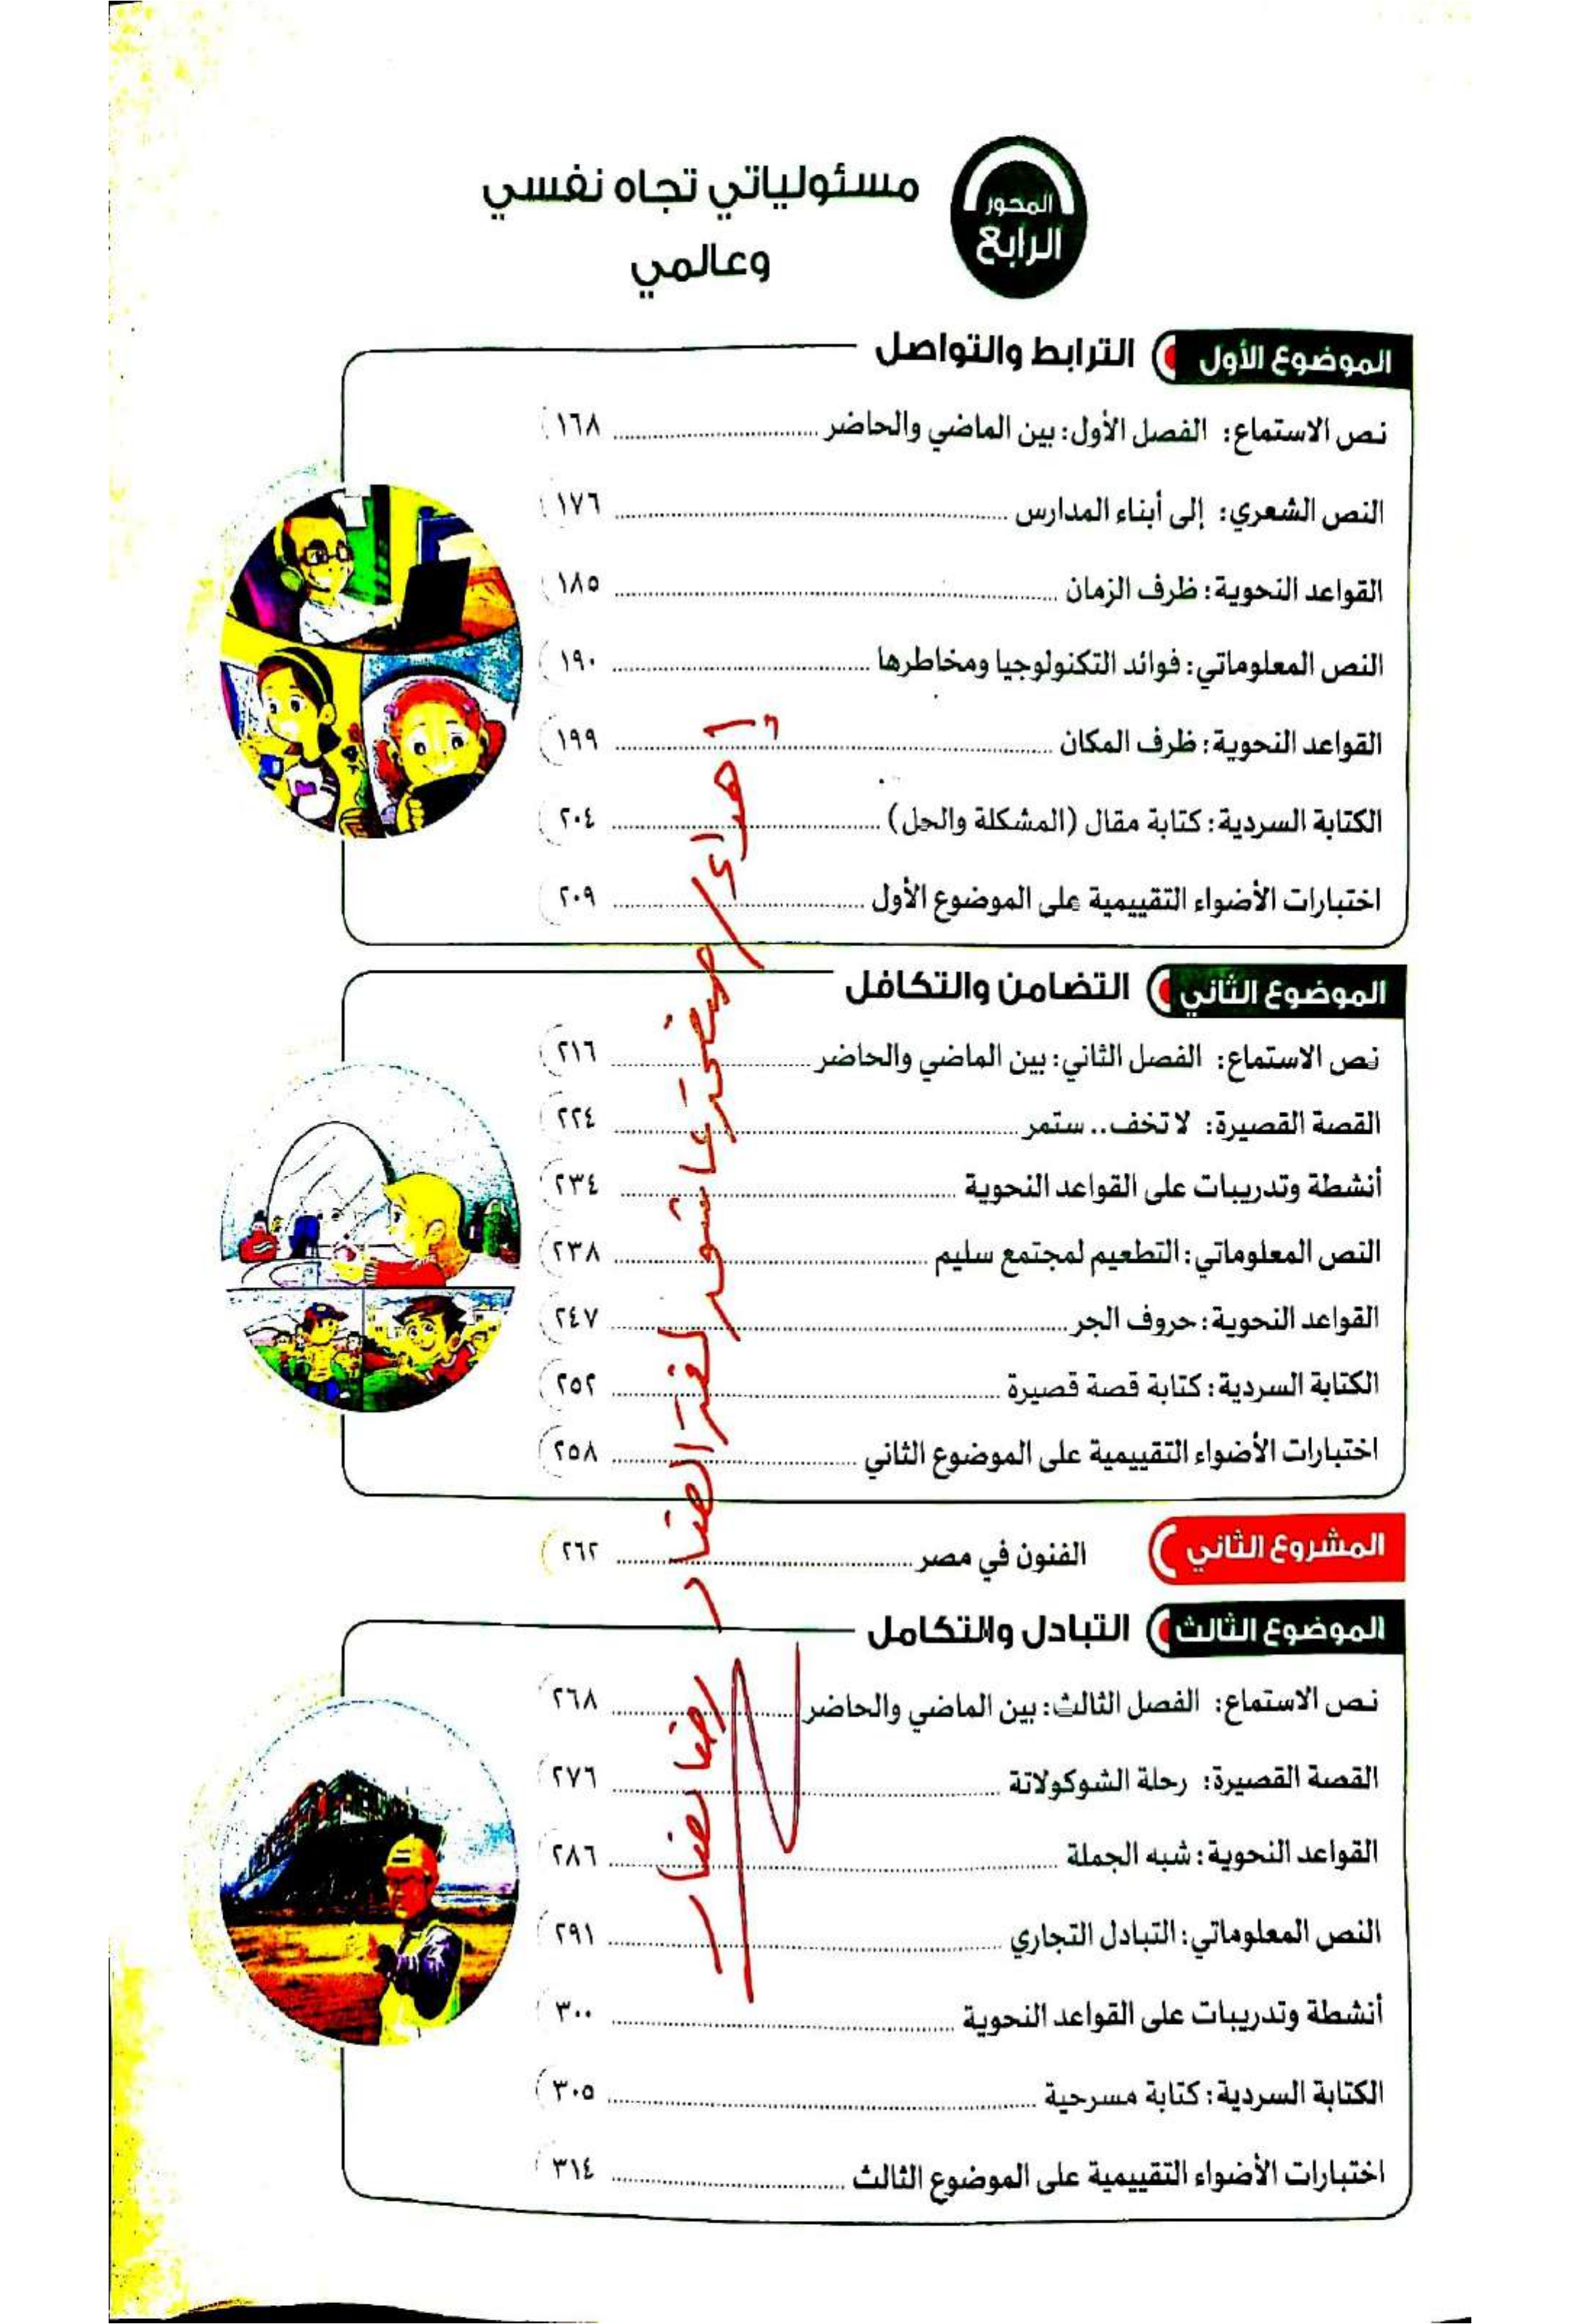 المحور
الرابع
مسئولياتي تجاه نفسي
وعالمي
الموضوع الأول الترابط والتواصل
نص الاستماع: الفصل الأول: بين الماضي والحاضر ١٦٨
النص الشعري: إلى أبناء المدارس ١٧٦
القواعد النحوية: ظرف الزمان ١٨٥
النص المعلوماتي: فوائد التكنولوجيا ومخاطرها ١٩٠
القواعد النحوية: ظرف المكان ١٩٩
الكتابة السردية: كتابة مقال (المشكلة والحل) ٢٠٤
اختبارات الأضواء التقييمية على الموضوع الأول ٢٠٩
الموضوع الثاني التضامن والتكافل
نص الاستماع: الفصل الثاني: بين الماضي والحاضر ٢١٦
القصة القصيرة: لا تخف.. ستمر ٢٢٤
أنشطة وتدريبات على القواعد النحوية ٢٣٤
النص المعلوماتي: التطعيم لمجتمع سليم ٢٣٨
القواعد النحوية: حروف الجر ٢٤٧
الكتابة السردية: كتابة قصة قصيرة ٢٥٢
اختبارات الأضواء التقييمية على الموضوع الثاني ٢٥٨
المشروع الثاني الفنون في مصر ٢٦٢
الموضوع الثالث التبادل والتكامل
نص الاستماع: الفصل الثالث: بين الماضي والحاضر ٢٦٨
القصة القصيرة: رحلة الشوكولاتة ٢٧٦
القواعد النحوية: شبه الجملة ٢٨٦
النص المعلوماتي: التبادل التجاري ٢٩١
أنشطة وتدريبات على القواعد النحوية ٣٠٠
الكتابة السردية: كتابة مسرحية ٣٠٥
اختبارات الأضواء التقييمية على الموضوع الثالث ٣١٤
إهداء / صفحة عاشور لغة الضاد
رضا